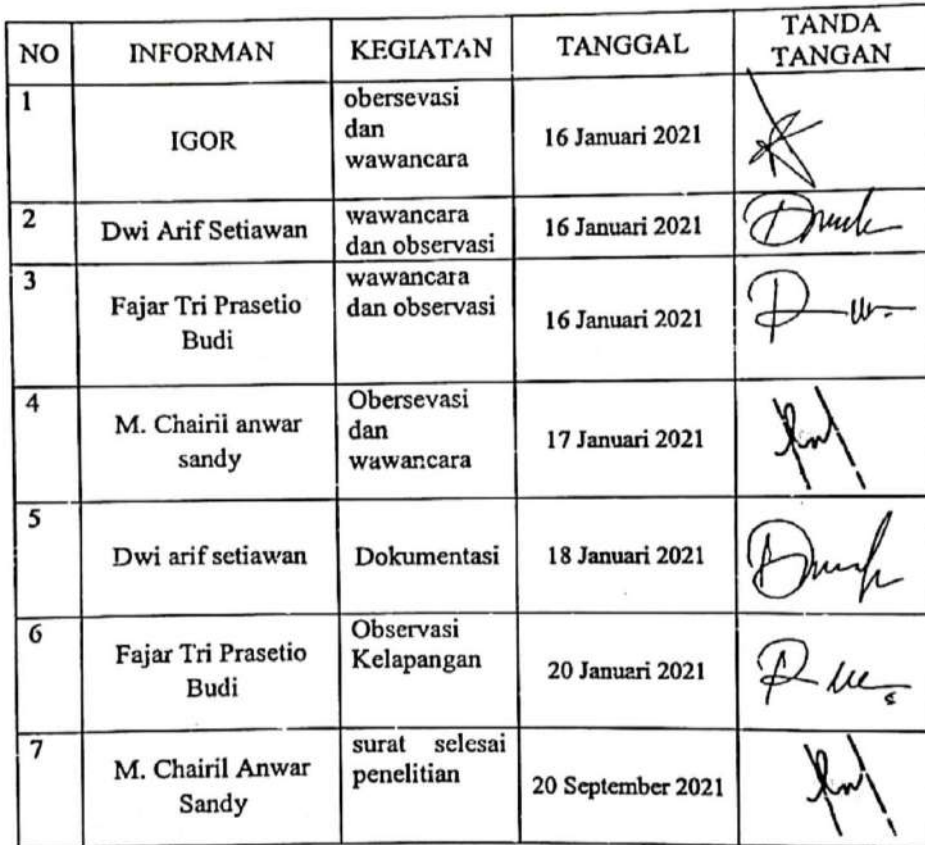 NO INFORMAN KEGIATAN TANGGAL TANDA TANGAN
1 IGOR obersevasi dan wawancara 16 Januari 2021
2 Dwi Arif Setiawan wawancara dan observasi 16 Januari 2021
3 Fajar Tri Prasetio Budi wawancara dan observasi 16 Januari 2021
4 M. Chairil anwar sandy Obersevasi dan wawancara 17 Januari 2021
5 Dwi arif setiawan Dokumentasi 18 Januari 2021
6 Fajar Tri Prasetio Budi Observasi Kelapangan 20 Januari 2021
7 M. Chairil Anwar Sandy surat selesai penelitian 20 September 2021